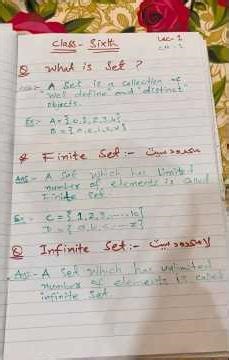 Class - Sixth
Lec - 1
Ch - 1
Q What is Set ?
Ans:- A Set is a collection of
well define and distinct
objects.
Ex:- A = {0,1,2,3,4}
B = {a,e,i,o,u}
Q Finite Set :- محدود سیٹ
Ans:- A Set which has limited
number of elements is called
Finite Set
Ex:- C = {1,2,3,.....10}
D = {a,b,c.....z}
Q Infinite Set :- لامحدود سیٹ
Ans:- A Set which has unlimited
number of elements is called
infinite Set